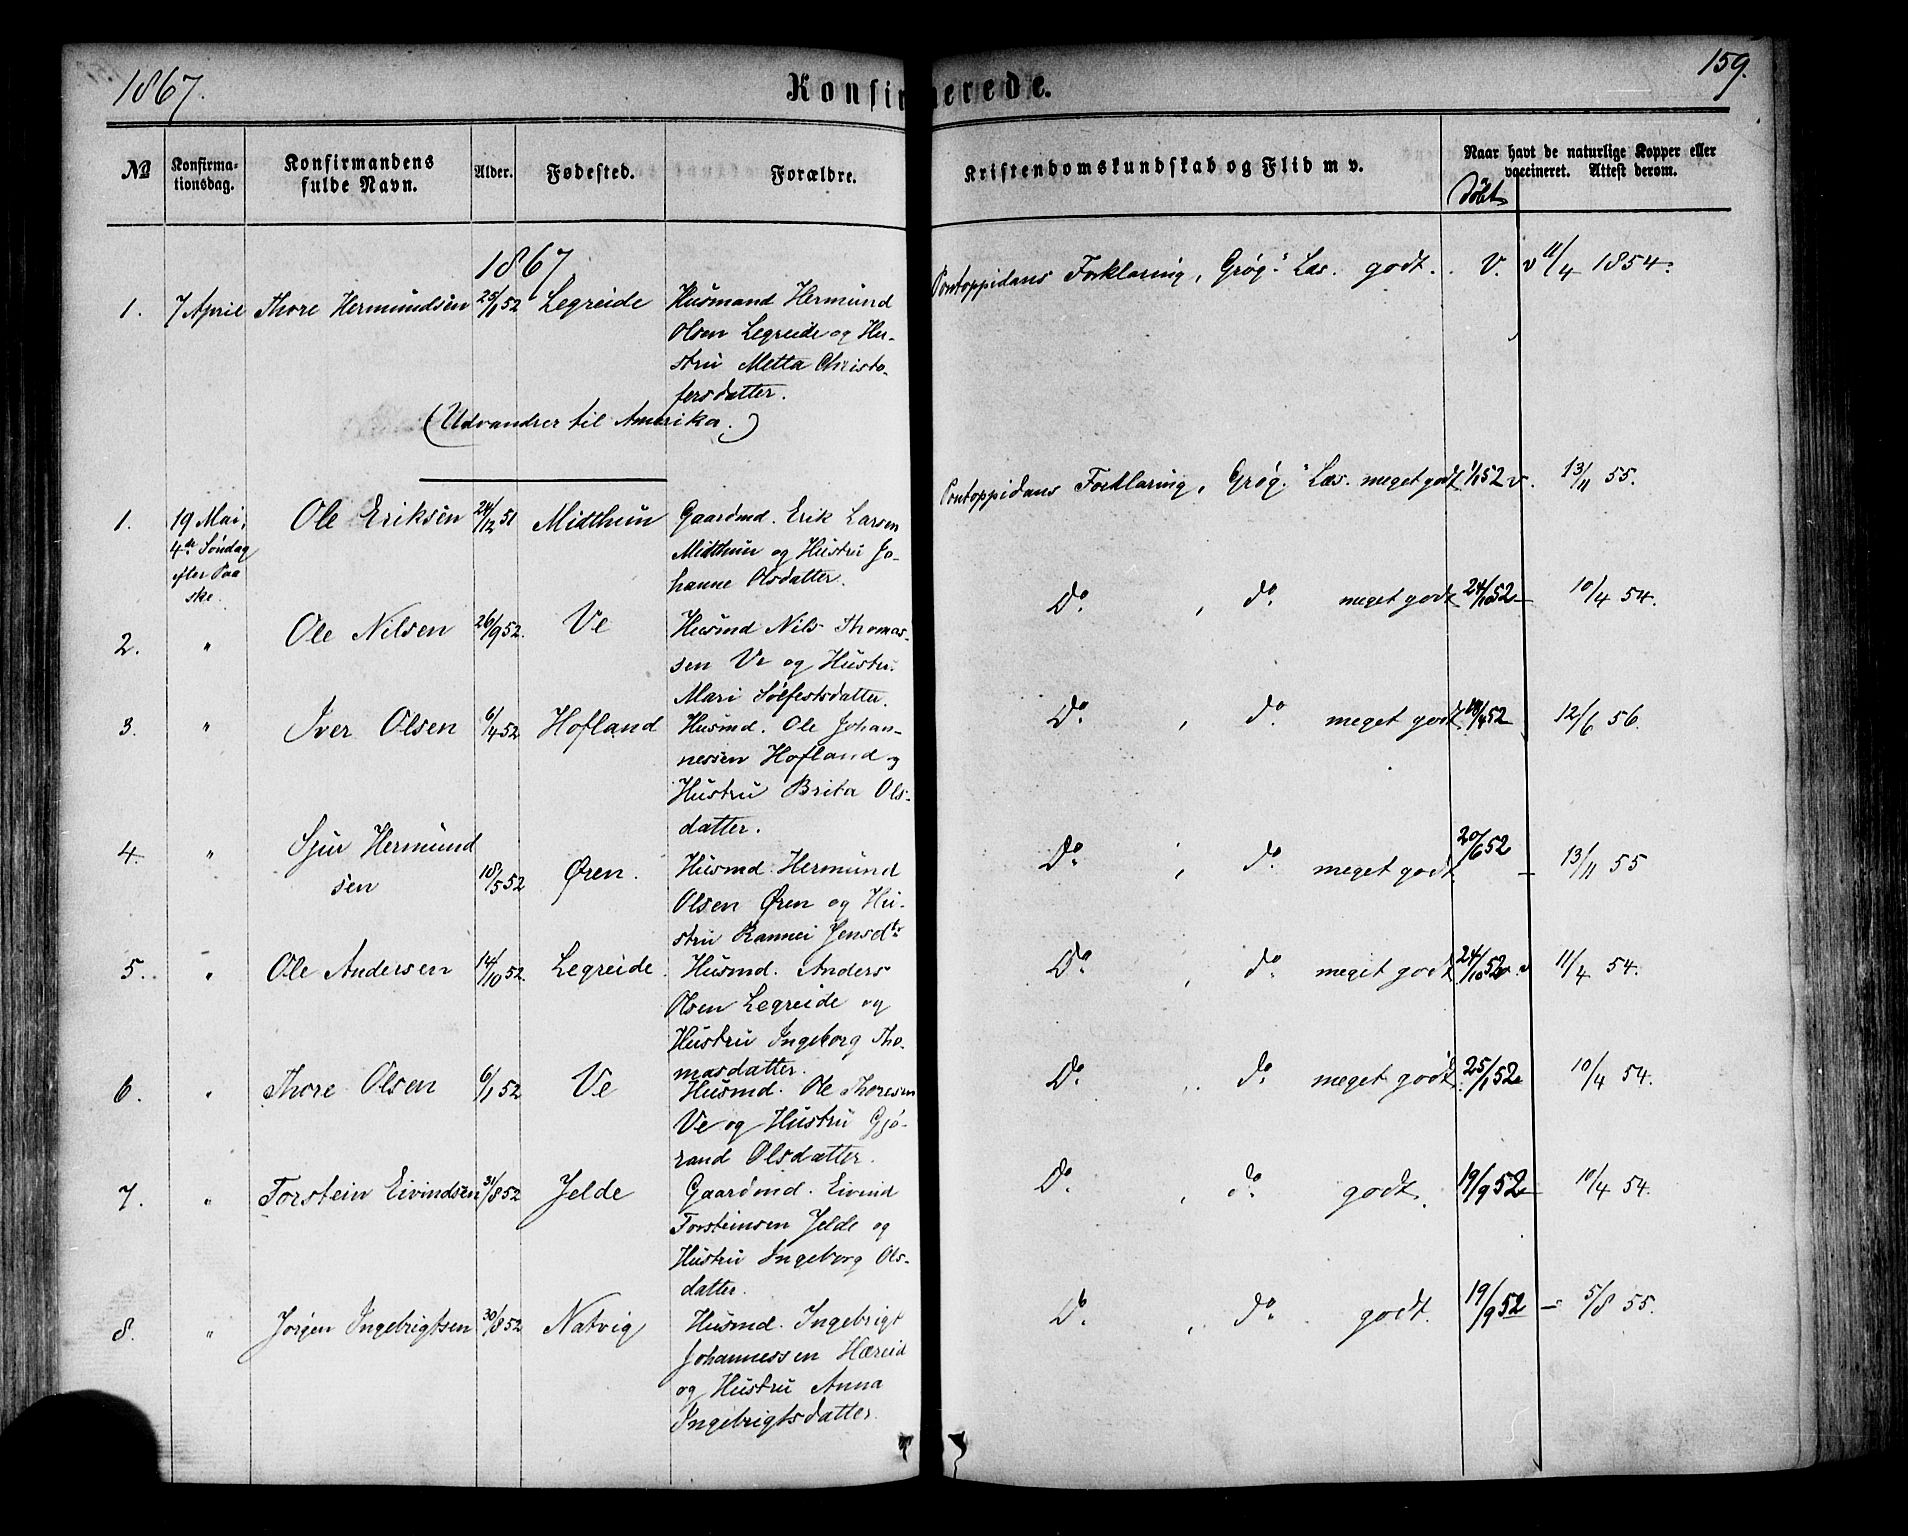 1867.
Konfirmerede.
159.
No
Konfirma-
tionsdag.
Konfirmandens
fulde Navn.
Alder.
Fødested.
Forældre.
Kristendomskundskab og Flid m v.
Naar havt de naturlige Kopper eller
vaccineret. Attest derom.
Döbt
1867
1. 7 April Thore Hermundsen 25/1 52 Legreide Husmand Hermund
Olsen Legreide og Hu-
stru Metta Christo-
fersdatter.
Pontoppidans Forklaring, Grøg. Læs. godt. V. v 11/4 1854.
(Udvandrer til Amerika.)
1. 19 Mai, Ole Eriksen 24/12 51 Midthun Gaardmd. Erik Larsen
4de Søndag Midthun og Hustru Jo-
efter Paa hanne Olsdatter.
ske.
Pontoppidans Forklaring, Grøg. Læs. meget godt 1/1 52 v. 13/11 55.
2. " Ole Nilsen 26/9 52. Ve Husmd Nils Thomas-
sen Ve og Hustru
Mari Sölfestsdatter.
Do. , do. meget godt 24/10 52 – 10/4 54.
3. " Iver Olsen 6/4 52 Hofland Husmd. Ole Johan-
nessen Hofland og
Hustru Brita Ols-
datter.
Do. , do. meget godt 18/4 52 – 12/6 56.
4. " Sjur Hermund
sen 18/5 52 Øren. Husmd. Hermund
Olsen Øren og Hu-
stru Rannei Jensdtr
Do. , do. meget godt. 20/6 52 – 13/11 55
5. " Ole Andersen 14/10 52. Legreide. Husmd. Anders
Olsen Legreide og
Hustru Ingeborg Tho-
masdatter.
Do. , do. meget godt 24/10 52 11/4 54.
6. " Thore Olsen 6/1 52 Ve Husmd. Ole Thoresen
Ve og Hustru Gjø-
rand Olsdatter.
Do. , do. meget godt. 25/1 52 10/4 54.
7. " Torstein Eivindsen 31/8 52 Jelde Gaardmd. Eivind
Torsteinsen Jelde og
Hustru Ingeborg Ols-
datter.
Do. , do. godt. 19/9 52 – 10/4 54.
8. " Jørgen Ingebrigtsen 30/8 52 Natvig Husmd. Ingebrigt
Johannessen Hæreid
og Hustru Anna
Ingebrigtsdatter.
Do. , do. godt. 19/9 52 – 5/8 55.